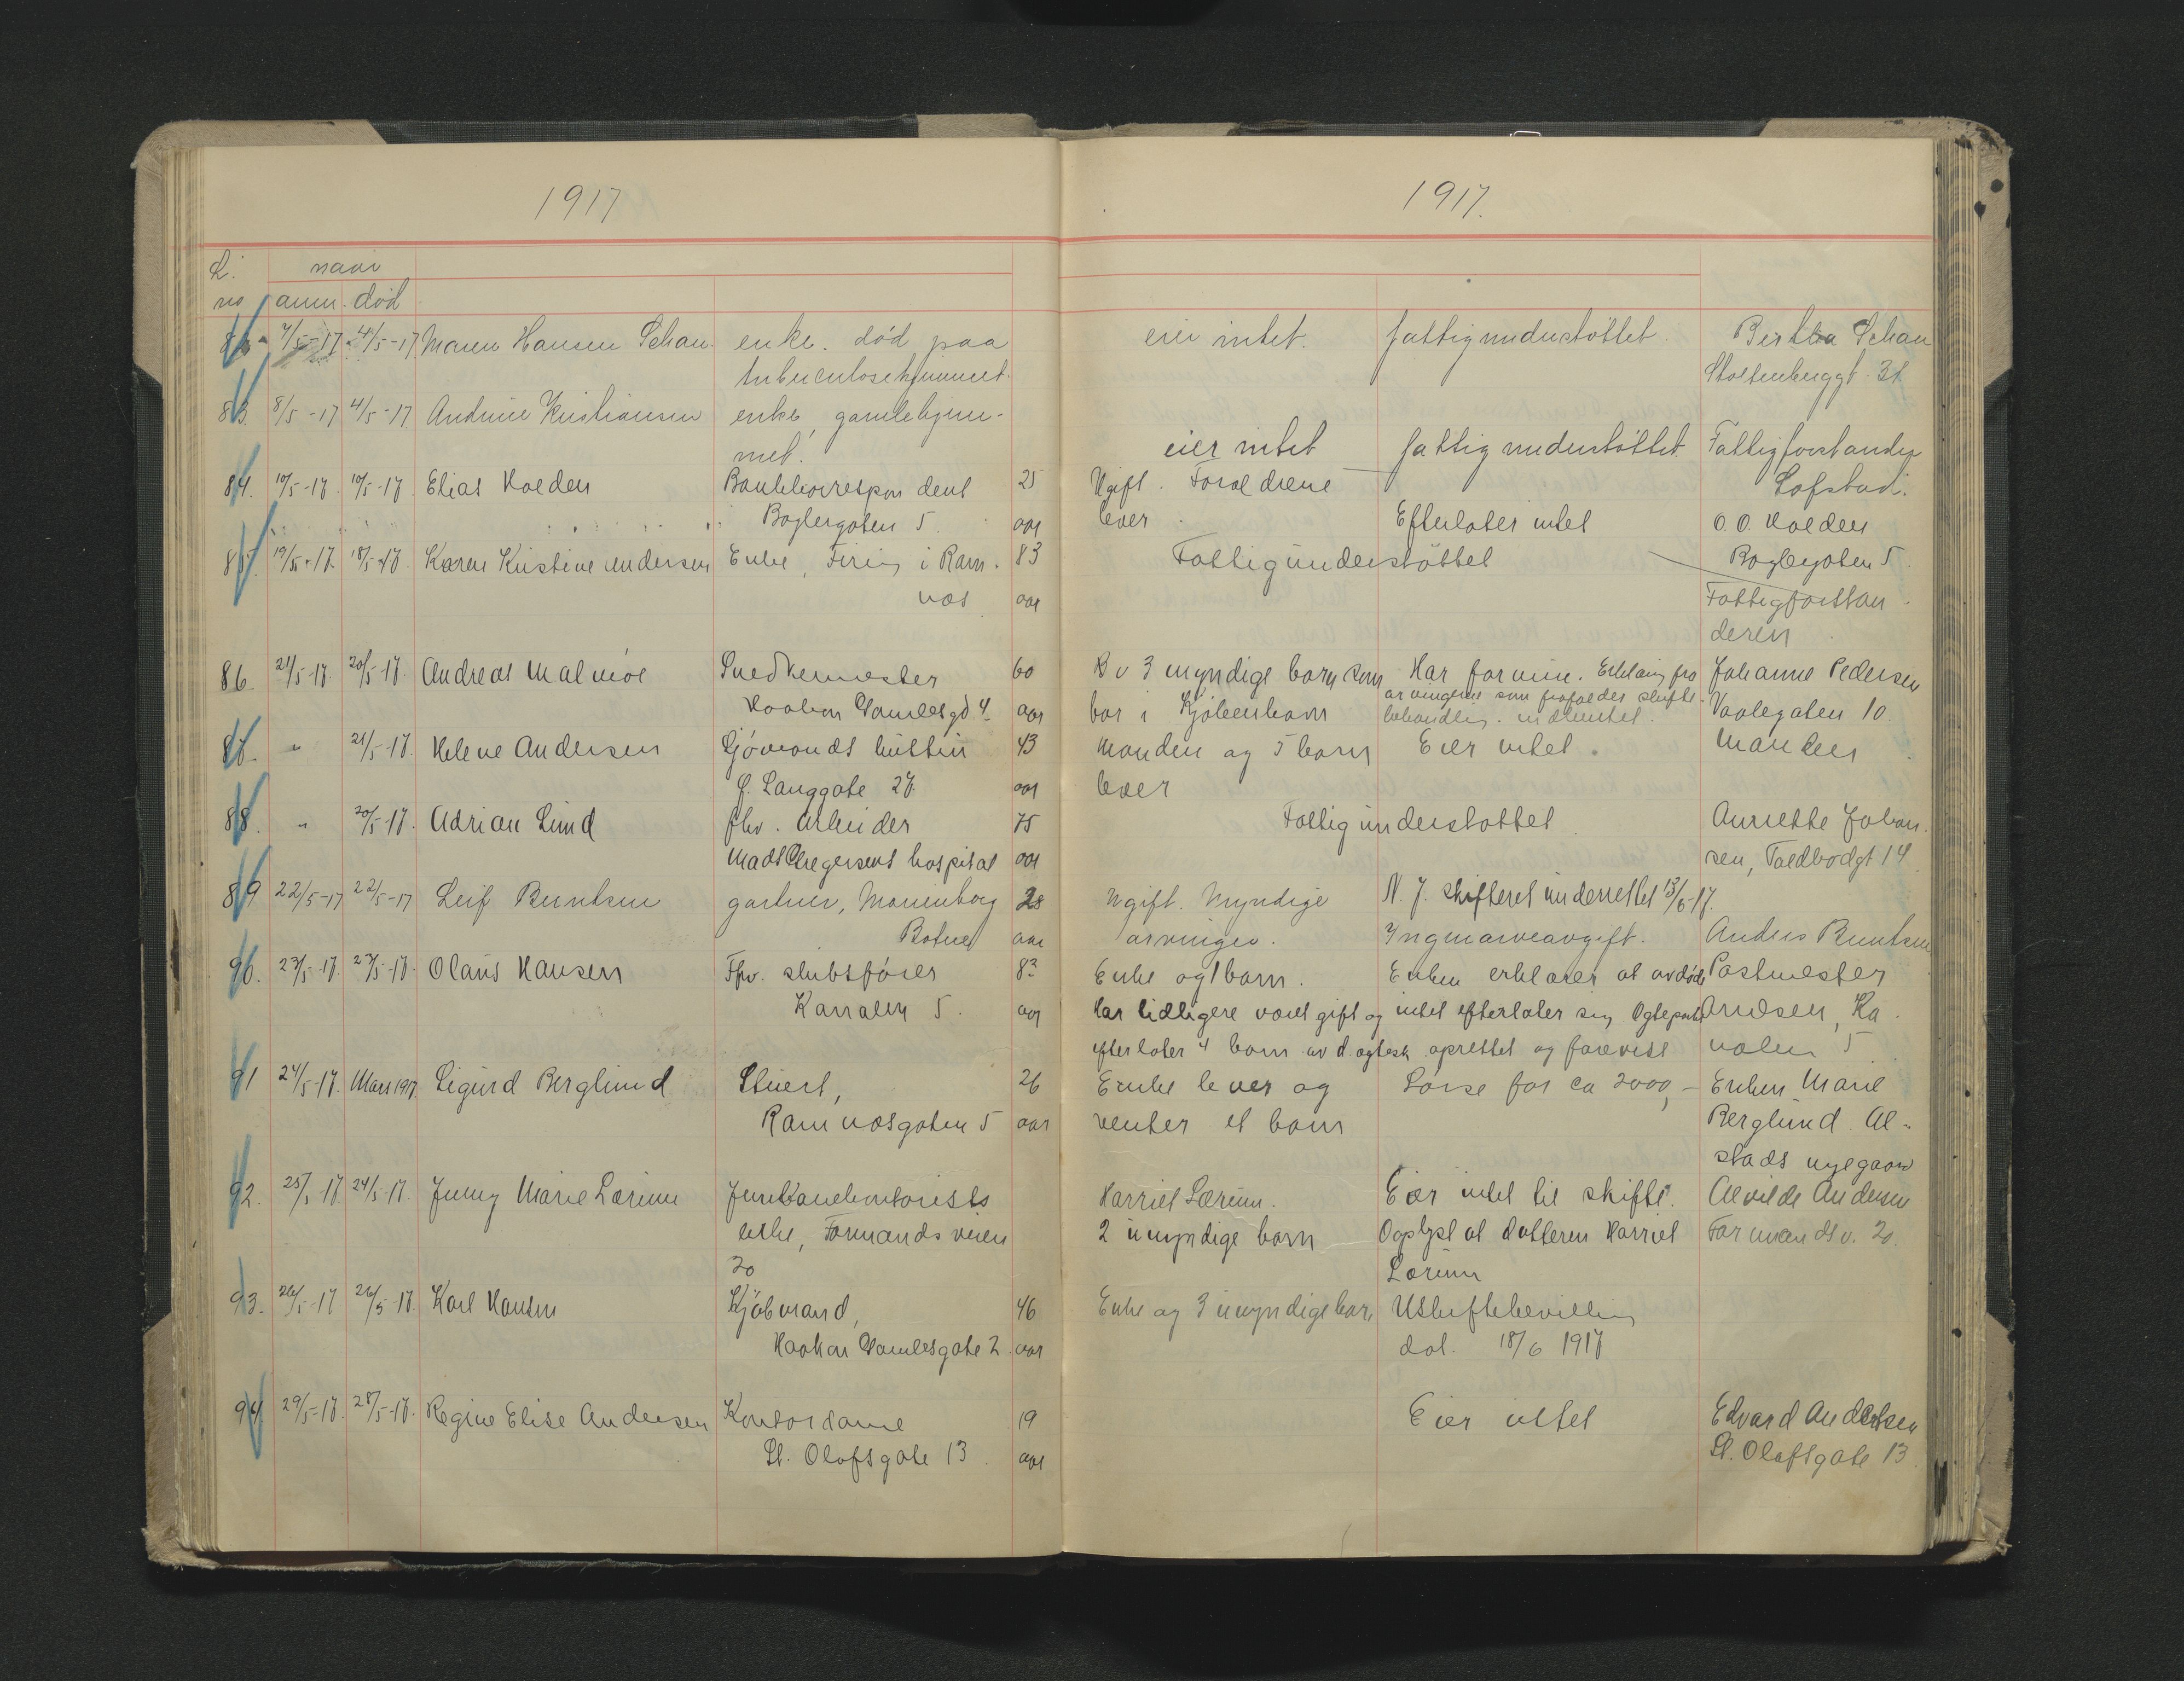 1917
1917.
L. naar
no anm. død
82 7/5-17 4/5-17 Maren Hansen Schau enke. død paa eier intet. fattigunderstøttet. Bertha Schau
tuberculosehjemmet. Stoltenberggt. 31.
83. 8/5-17 4/5-17 Andrine Kristiansen enke, gamlehjem-
met. eier intet fattigunderstøttet. Fattigforstander
84. 10/5-17. 10/5-17. Elias Holden Bankkorrespondent 25 Ugift. Forældrene Lofstad.
Baglergaten 5. aar lever. Efterlater intet O. O. Holden
85. 19/5-17. 18/5-17. Karen Kristine Andersen Enke, Firing i Ram- 83 Fattigunderstøttet Baglergaten 5.
nes aar Fattigforstan-
deren
86. 21/5-17 20/5-17. Andreas Malmøe Snedkermester 60 3 myndige barn som Har formue. Erklæring fra Johanne Pedersen
Haakon Gamlesgd 4. aar bor i Kjøbenhavn arvingerne som frafaldes skifte- Vaalegaten 10.
behandling. indhentet.
87. " 21/5-17. Helene Andersen Sjømands hustru 43 Manden og 5 barn Eier intet. Manden
Ø. Langgate 27. aar lever
88. " 20/5-17. Adrian Lund fhv. Arbeider 75 Fattigunderstøttet Annette Johan-
Mads Gregersens hospital aar sen, Toldbodgt 14
89 22/5-17 22/5-17 Leif Berntsen gartner, Marienborg 28 Ugift. Myndige N. J. skifteret underrettet 13/6-17.
Botne aar arvinger. Ingen arveavgift. Anders Berntsen
90. 23/5-17. 23/5-17. Olaus Hansen Fhv. skibsfører 82 Enke og 1 barn. Enken erklærer at avdøde Postmester
Kanalen 5. aar Har tidligere været gift og intet efterlater sig. Ogtepakt Arnesen, Ka-
efterlater 4 barn av d. egtesk. oprettet og forevist nalen 5
91 24/5-17. Mars 1917. Sigurd Berglund Stuert, 26 Enke lever og Løsøre for ca 2000,- Enken Marie
Ramnæsgaten 5 aar venter et barn Berglund. Al-
stads nyegaard
92. 25/5-17 24/5-17. Jenny Marie Lorenn Jernbanekontorists Harriet Lorenn. Eier intet til skifte. Alvilde Andersen
enke, Formandsveien 2 umyndige barn Opplyst at datteren Harriet Formandsv. 20.
20 Lorenn
93. 26/5-17 26/5-17. Karl Hansen Kjøbmand, 46 Enke og 3 umyndige barn Uskiftebevilling
Haakon Gamlesgate 2. aar dat. 18/6 1917
94 29/5-17. 28/5-17. Regine Elise Andersen Kontordame 19 Eier intet Edvard Andersen
St. Olafsgate 13. aar St. Olafsgate 13.